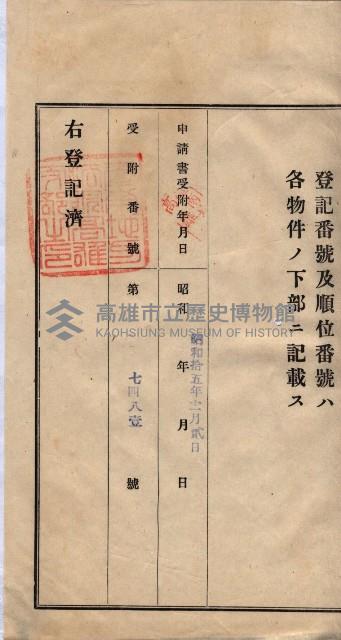 登記番號及順位番號ハ
各物件ノ下部ニ記載ス
申請書受附年月日 昭和 年 月 日
昭和拾五年十一月貳日
受附番號 第 七四八壹 號
右登記濟
高雄市立歷史博物館
KAOHSIUNG MUSEUM OF HISTORY